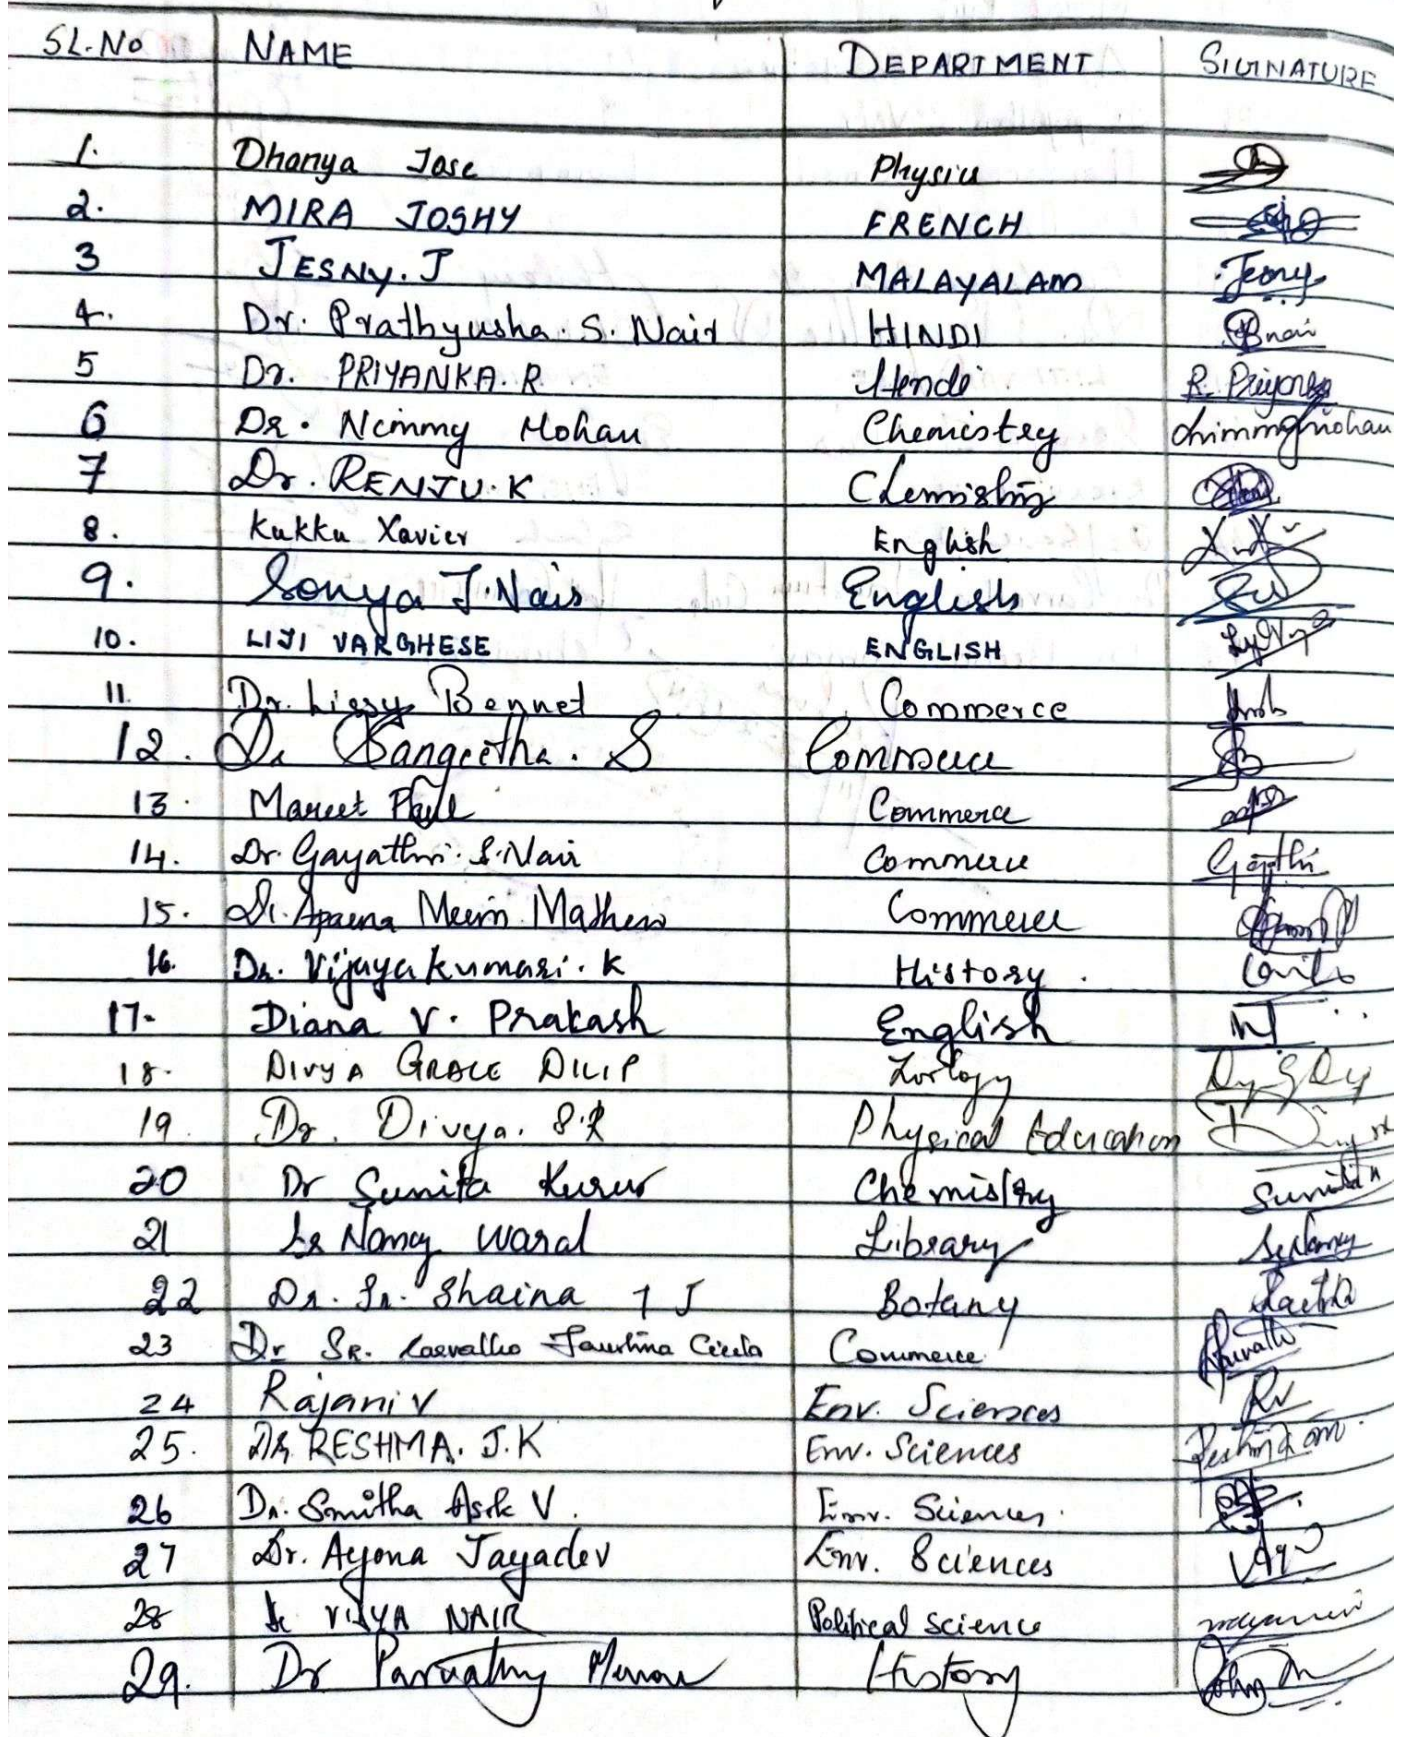 SL.No NAME DEPARTMENT SIGNATURE
1. Dhanya Jose Physics
2. MIRA JOSHY FRENCH
3 JESNY. J MALAYALAM Jesny
4. Dr. Prathyusha. S. Nair HINDI
5 Dr. PRIYANKA. R Hindi R. Priyanka
6 Dr. Nimmy Mohan Chemistry Nimmy Mohan
7 Dr. RENJU. K Chemistry
8. Kukku Xavier English
9. Sonya J. Nair English
10. LIJI VARGHESE ENGLISH
11. Dr. Lissy Bennet Commerce
12. Dr Sangeetha. S Commerce
13. Mareet Paul Commerce
14. Dr. Gayathri. S. Nair Commerce Gayathri
15. Dr. Aparna Merin Mathew Commerce
16. Dr. Vijayakumari. K History.
17. Diana V. Prakash English
18. DIVYA GRACE DILIP Zoology
19. Dr. Divya. S.R Physical Education
20 Dr Sunita Kurur Chemistry
21 Sr Nancy Waral Library Sr Nancy
22 Dr. Sr. Shaina T J Botany
23 Dr SR. Carvalho Faustina Commerce
24 Rajani V Env. Sciences RV
25. DR RESHMA. J.K Env. Sciences
26 Dr. Smitha Asok V. Env. Sciences.
27 Dr. Ayona Jayadev Env. Sciences
28 Dr VIJYA NAIR Political Science
29. Dr Parvathy Menon History